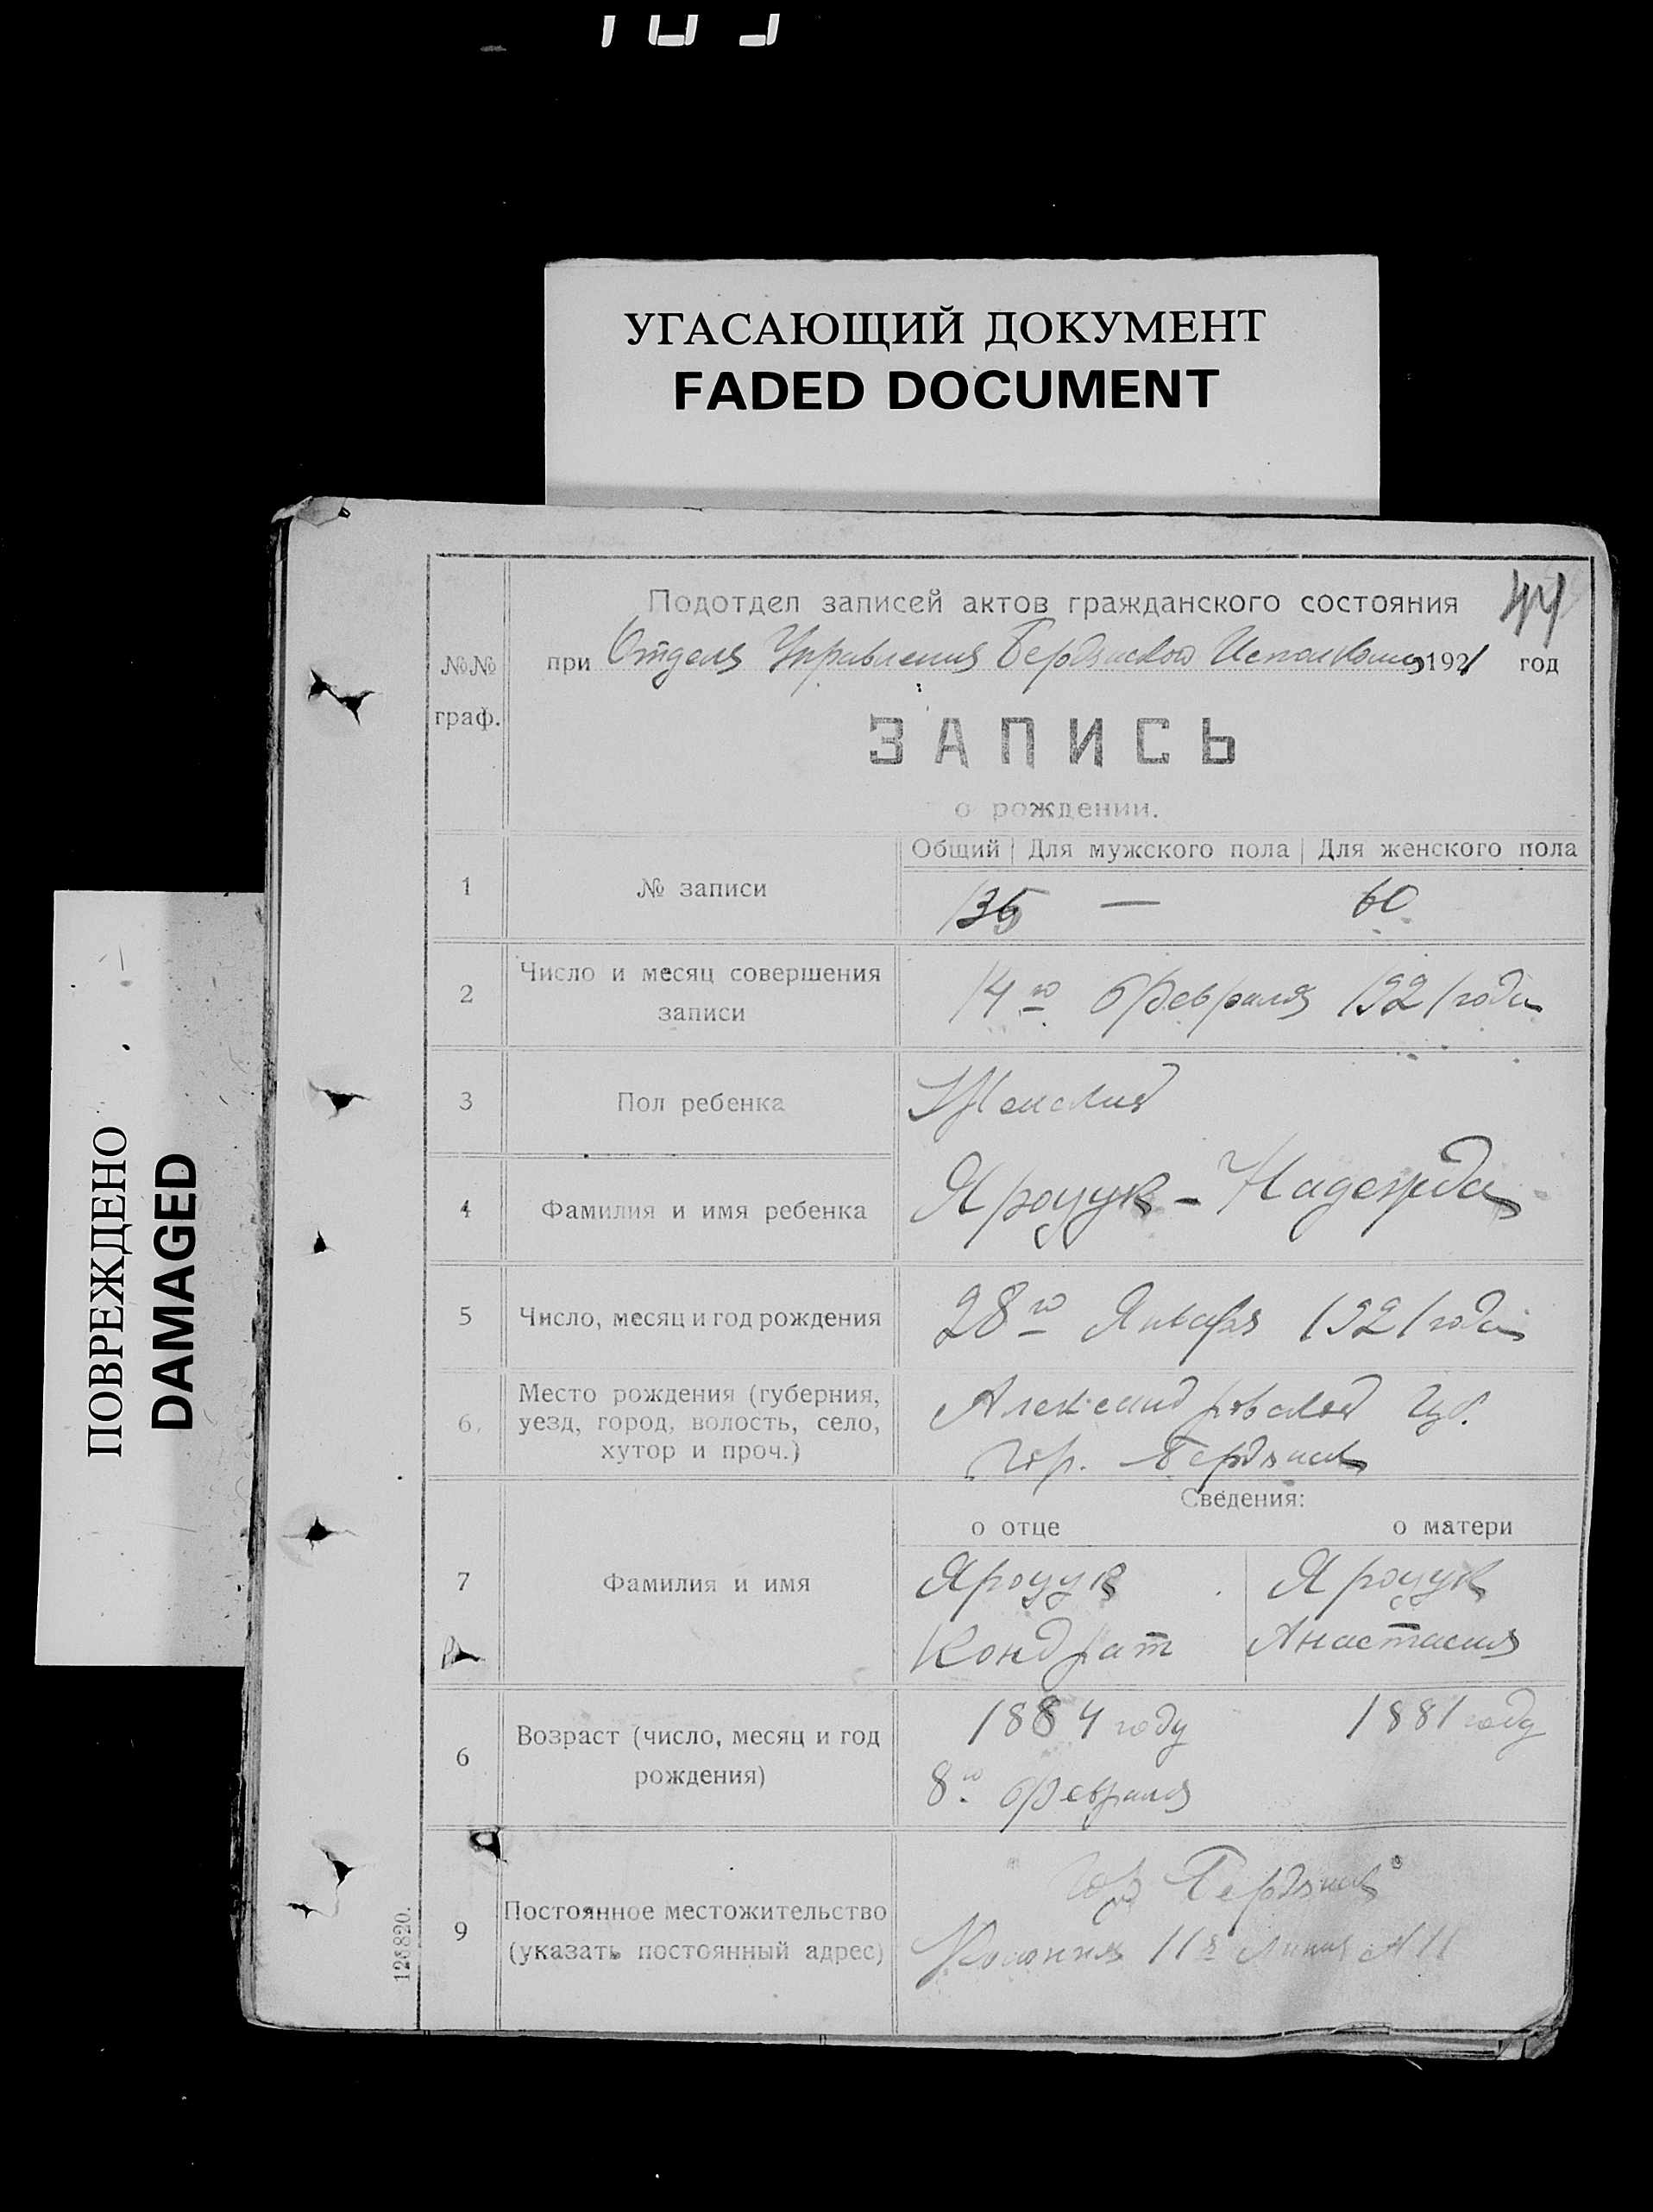 УГАСАЮЩИЙ ДОКУМЕНТ
FADED DOCUMENT
ПОВРЕЖДЕНО
DAMAGED
44
Подотдел записей актов гражданского состояния
№№ граф.
при Отдела Управления Бердянского Исполкома 1921 год
ЗАПИСЬ
о рождении.
Общий Для мужского пола Для женского пола
1 № записи 136 — 60
2 Число и месяц совершения
записи
14го Февраля 1921 года
3 Пол ребенка Женский
4 Фамилия и имя ребенка Яроцук - Надежда
5 Число, месяц и год рождения 28го Января 1921 года
6. Место рождения (губерния,
уезд, город, волость, село,
хутор и проч.)
Александровской Губ.
Гор. Бердянск
Сведения:
о отце о матери
7 Фамилия и имя
Яроцук Яроцук
Кондрат Анастасия
6 Возраст (число, месяц и год
рождения)
1884 году 1881 году
8го Февраля
9 Постоянное местожительство
(указать постоянный адрес)
Гор Бердянск
Колония 11я Линия № 11
126820.